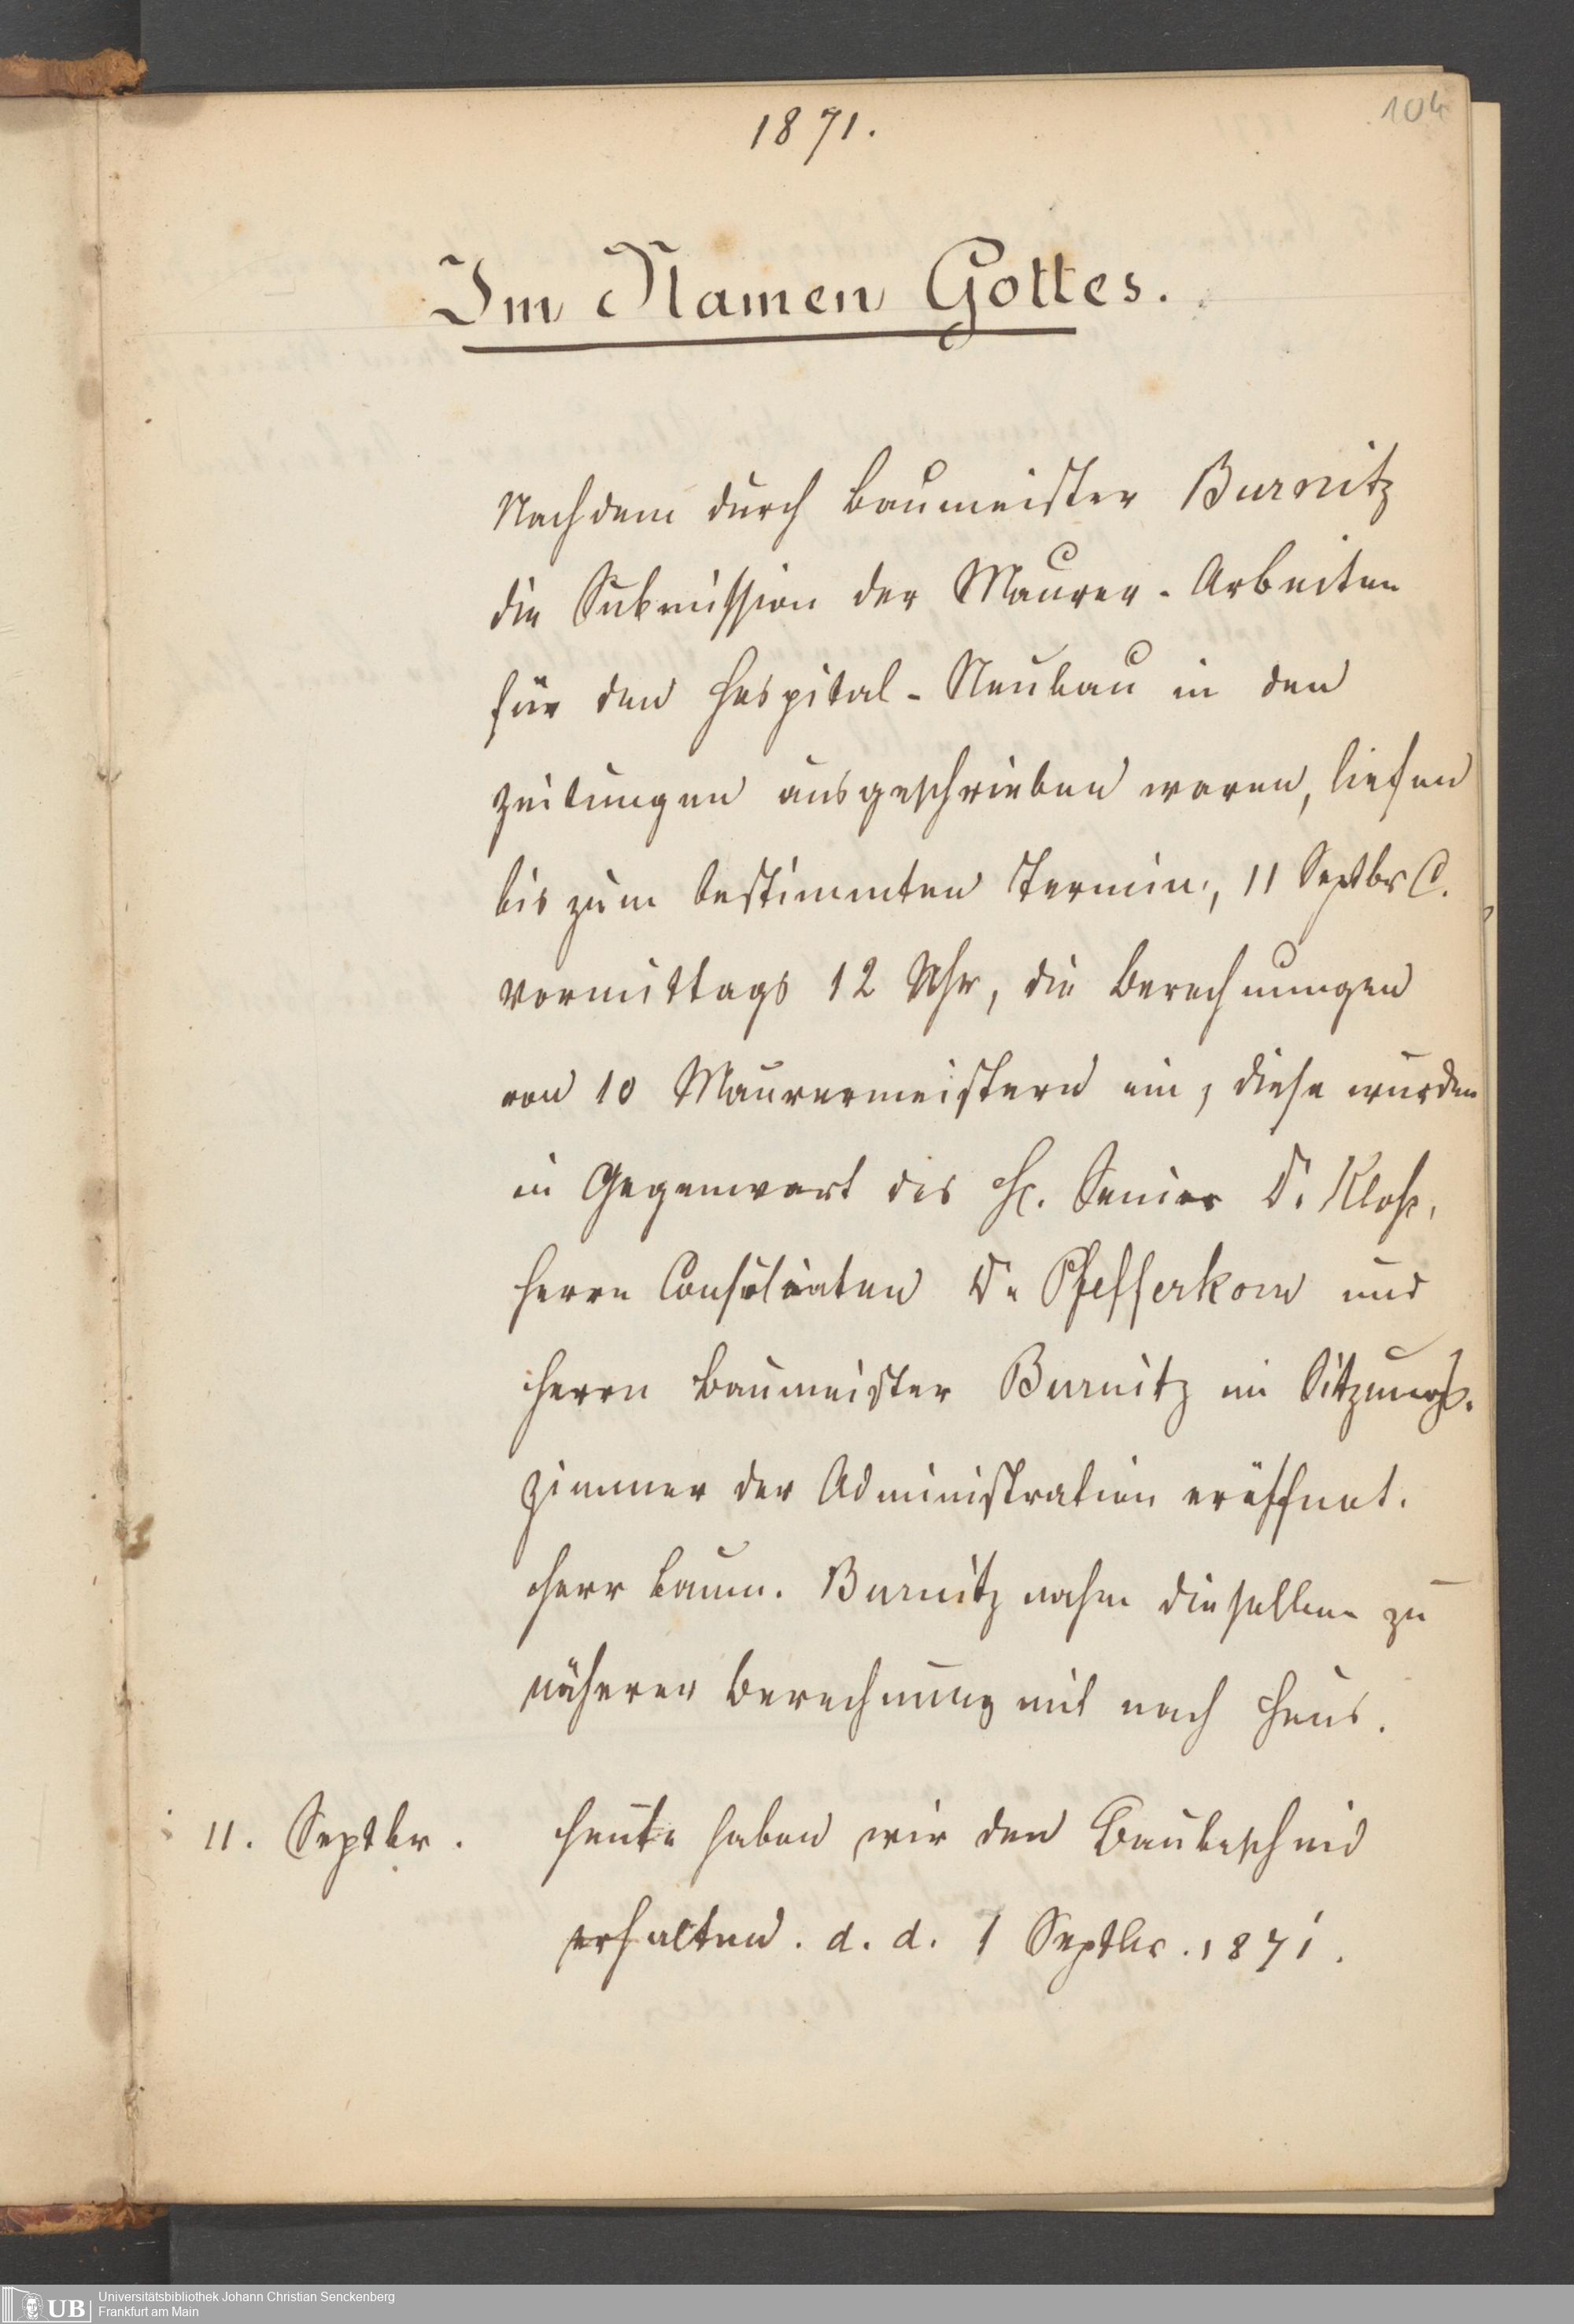 104
1871.
Im Namen Gottes.
Nachdem durch Baumeister Burnitz
die Submission der Maurer-Arbeiten
für den Hospital-Neubau in den
Zeitungen ausgeschrieben waren, liefen
bis zum bestimmten Termin, 11 Septbr C.
Vormittags 12 Uhr, die Berechnungen
von 10 Maurermeistern ein, diese wurden
in Gegenwart des H. Senior Dr Kloß,
Herrn Consulenten Dr Pfefferkorn und
Herrn Baumeister Burnitz im Sitzungs-
zimmer der Administration eröffnet.
Herr Baum. Burnitz nahm dieselben zu
näherer Berechnung mit nach Haus.
11. Septbr. Heute haben wir den Baubescheid
erhalten. d. d. 1 Septbr. 1871.
UB Universitätsbibliothek Johann Christian Senckenberg
Frankfurt am Main